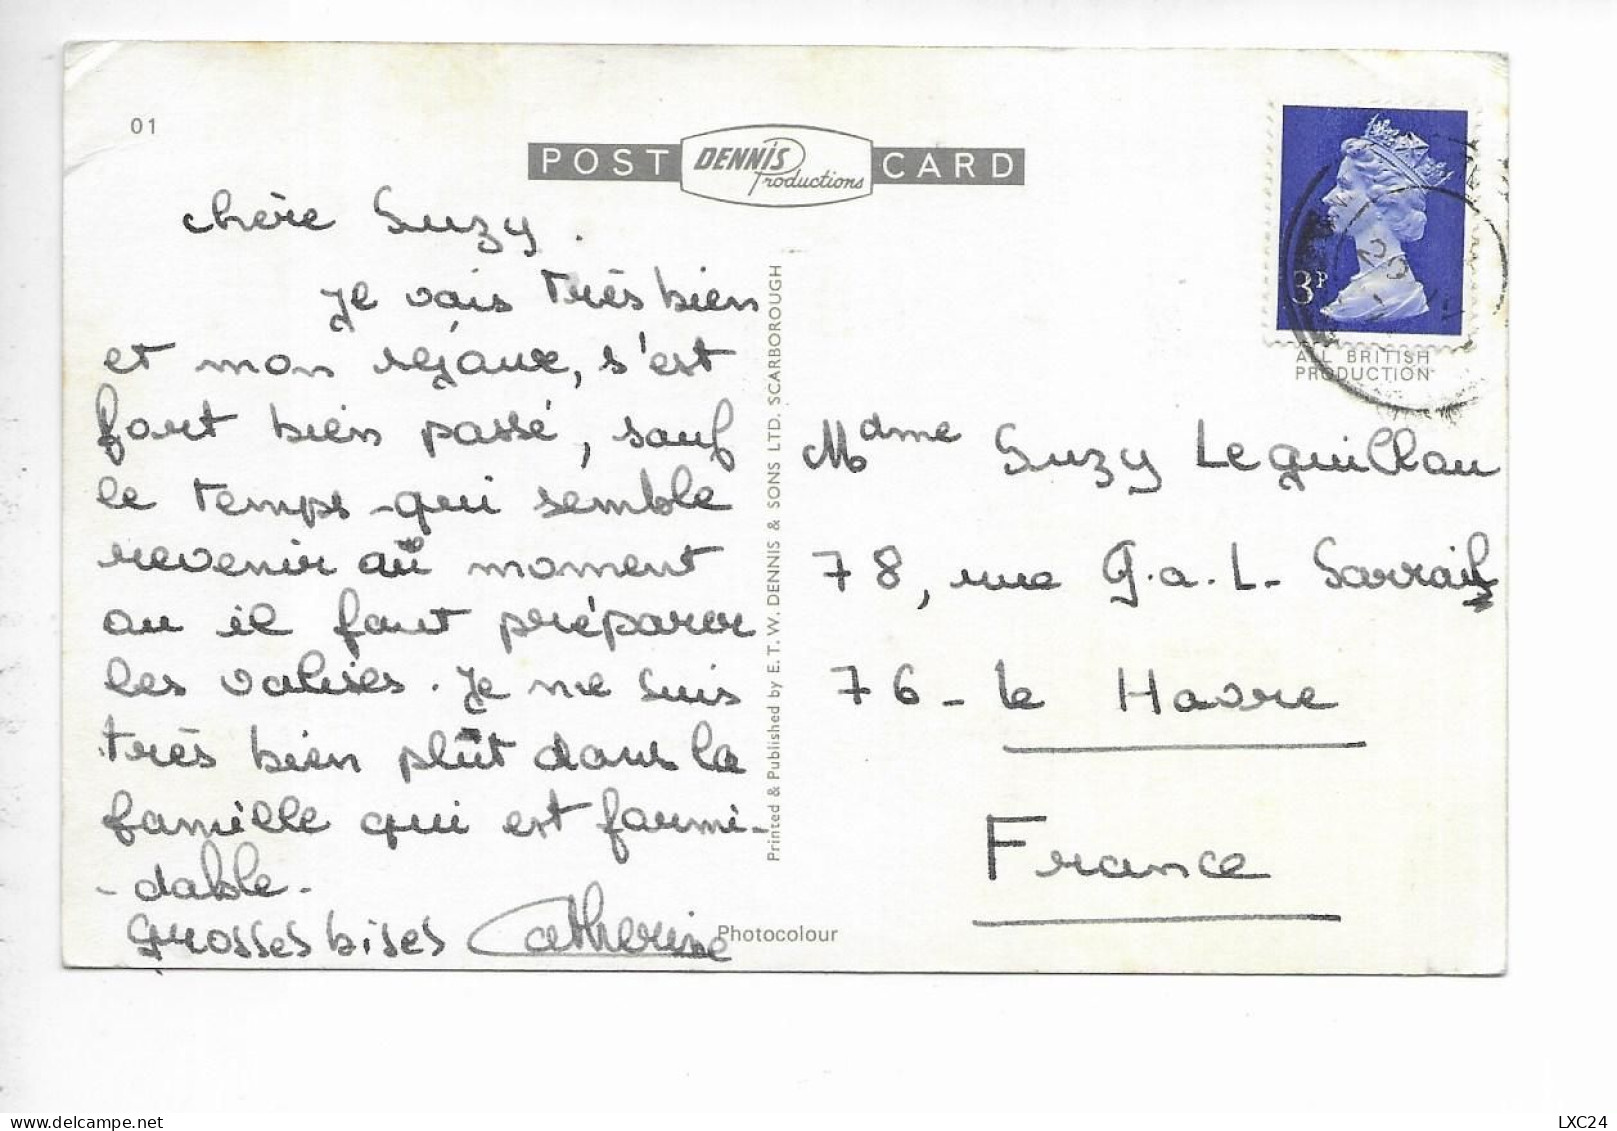 01
POST DENNIS Productions CARD
chère Suzy.
Je vais très bien
et mon séjour, s'est
fort bien passé, sauf
le temps qui semble
revenir au moment
ou il faut préparer
les valises. Je me suis
très bien plût dans la
famille qui est formi-
-dable.
grosses bises Catherine
Printed & Published by E.T.W. DENNIS & SONS LTD. SCARBOROUGH
Photocolour
3P
ALL BRITISH
PRODUCTION
Mdme Suzy Leguillou
78, rue G.a.L. Sarrail
76 - Le Havre
France
LXC24